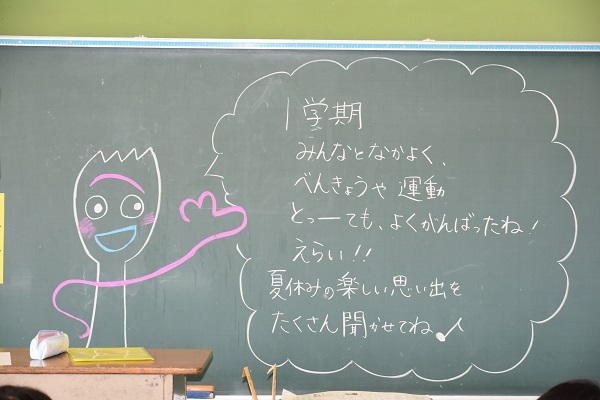 1学期
みんなとなかよく、
べんきょうや運動
とっーても、よくがんばったね!
えらい!!
夏休みの楽しい思い出を
たくさん聞かせてね♪